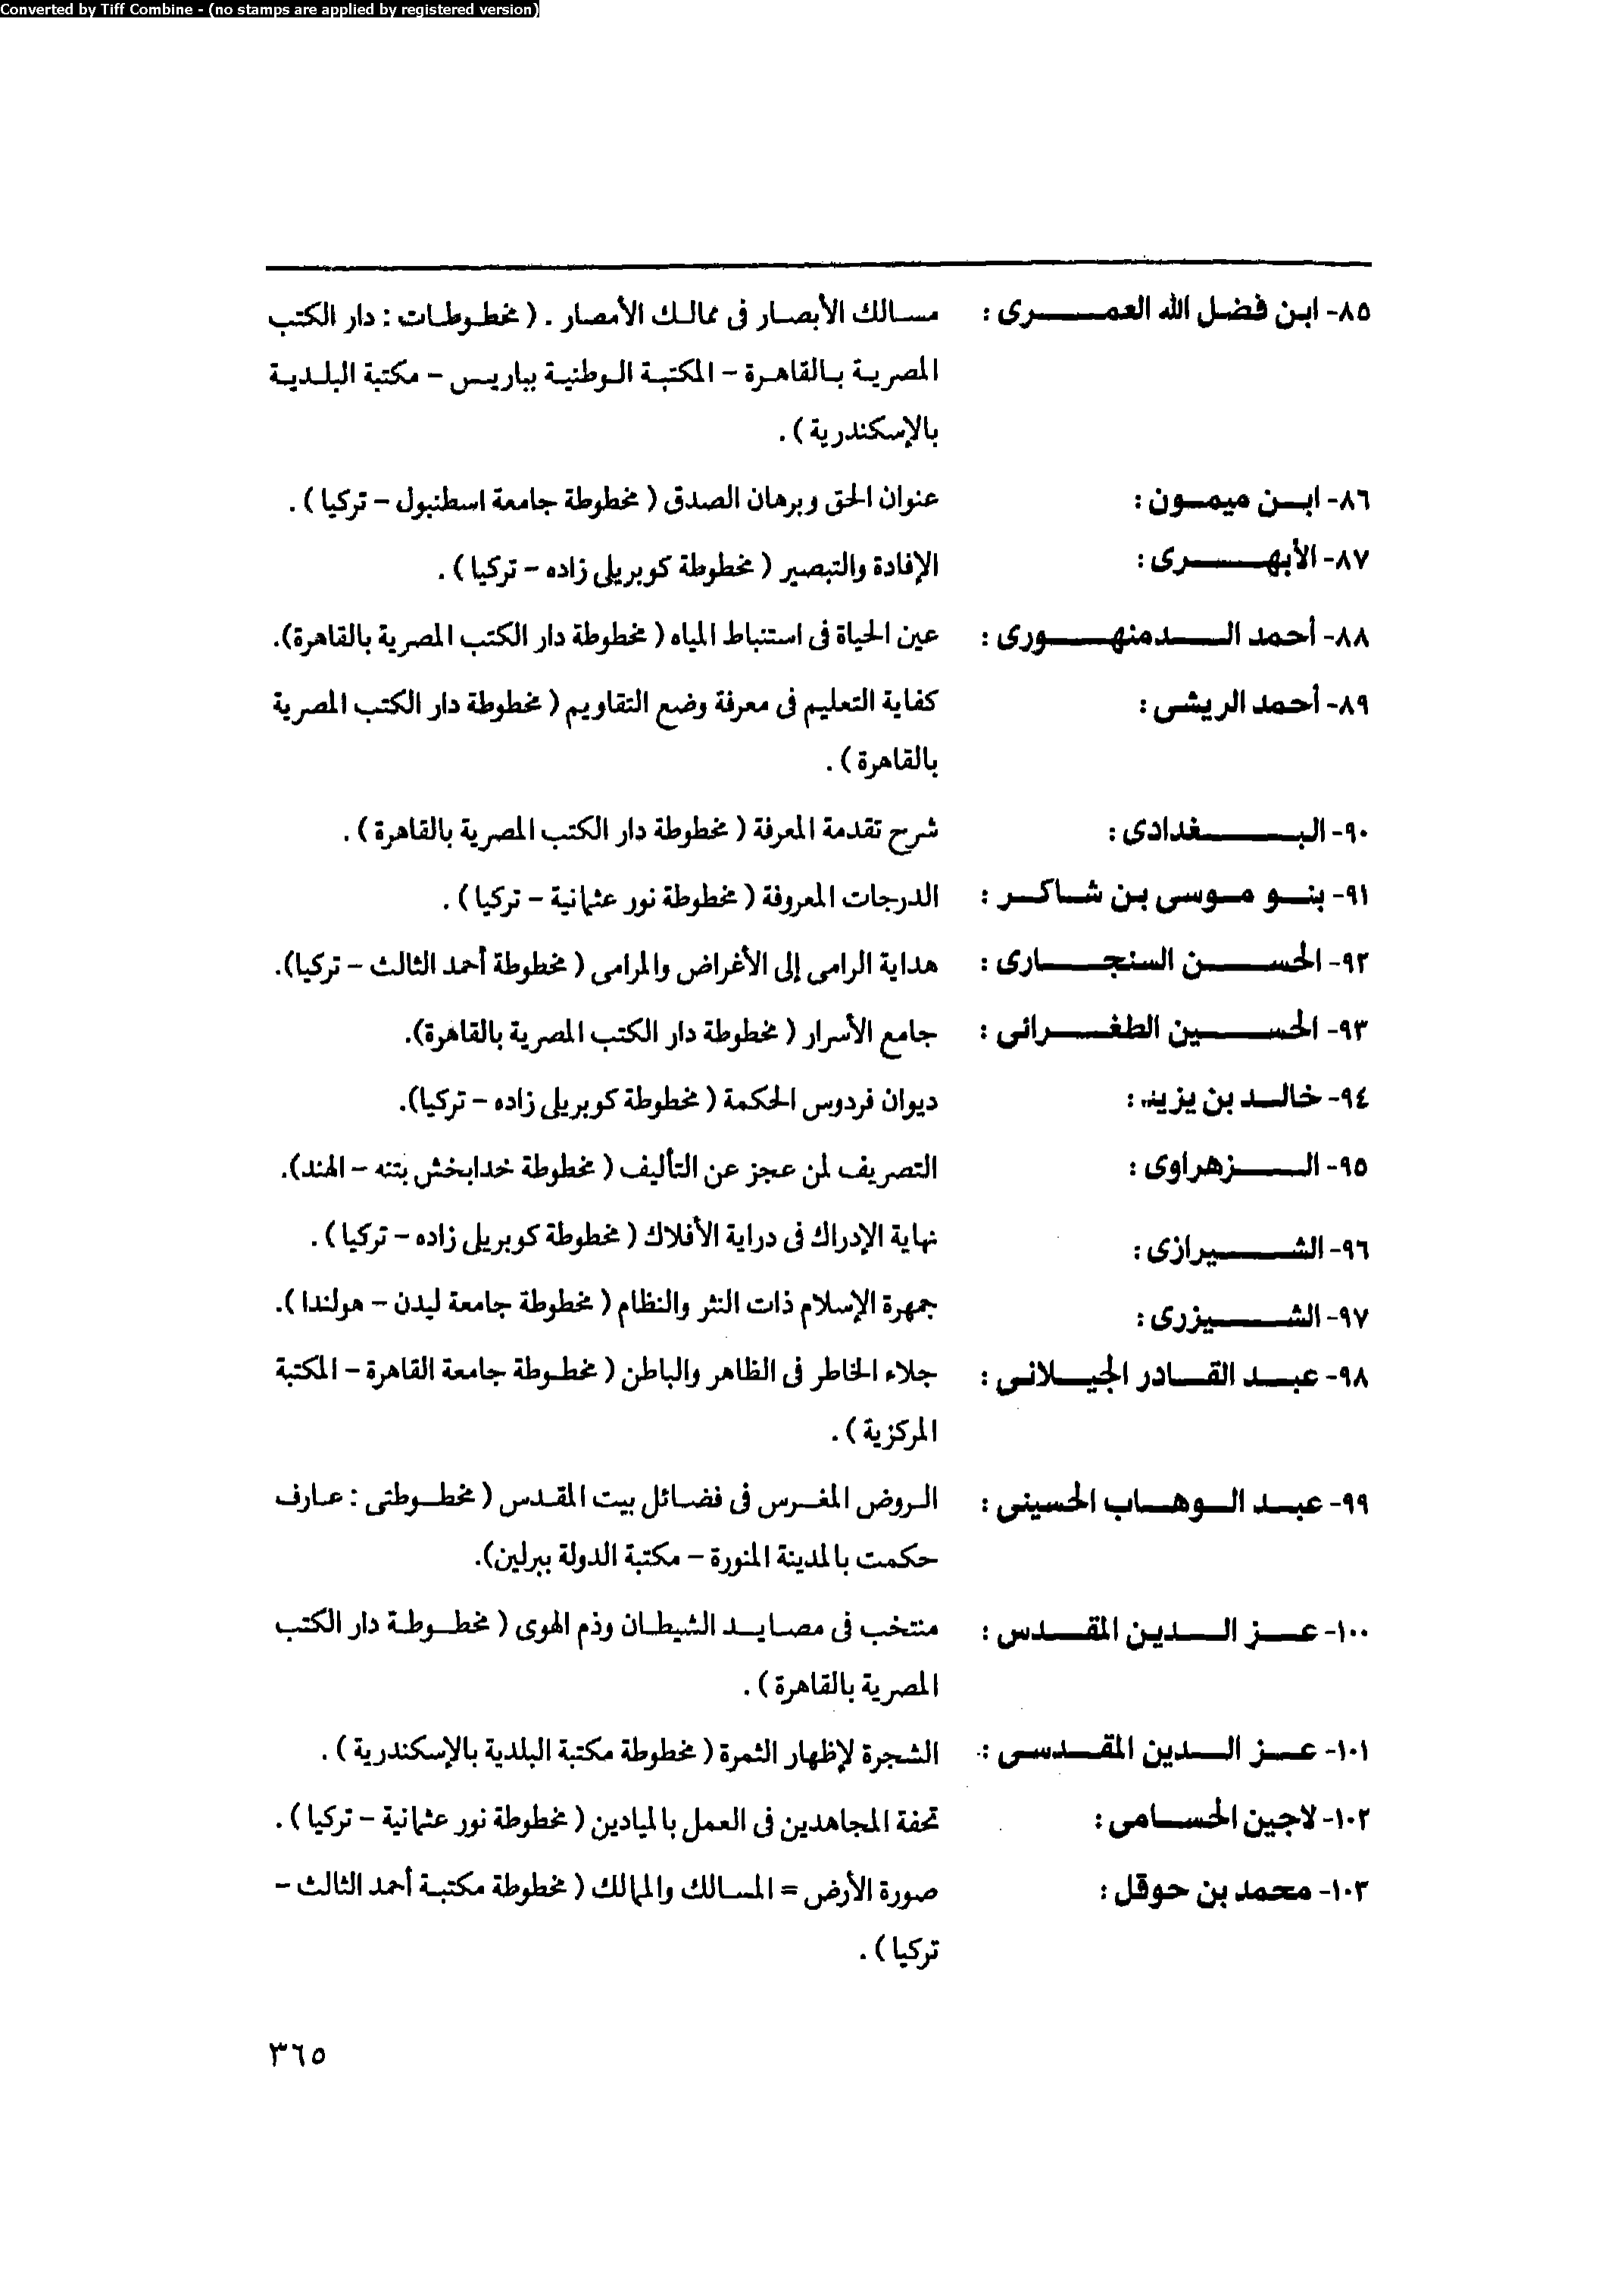 Converted by Tiff Combine - (no stamps are applied by registered version)
٨٥- ابن فضل الله العمرى : مسالك الأبصار فى ممالك الأمصار . ( مخطوطات : دار الكتب
المصرية بالقاهرة - المكتبة الوطنية بباريس - مكتبة البلدية
بالإسكندرية ) .
٨٦- ابن ميمون : عنوان الحق وبرهان الصدق ( مخطوطة جامعة اسطنبول - تركيا ) .
٨٧- الأبهرى : الإفادة والتبصير ( مخطوطة كوبريلى زاده - تركيا ) .
٨٨- أحمد الدمنهورى : عين الحياة فى استنباط المياه ( مخطوطة دار الكتب المصرية بالقاهرة).
٨٩- أحمد الريشى : كفاية التعليم فى معرفة وضع التقاويم ( مخطوطة دار الكتب المصرية
بالقاهرة ) .
٩٠- البغدادى : شرح تقدمة المعرفة ( مخطوطة دار الكتب المصرية بالقاهرة ) .
٩١- بنو موسى بن شاكر : الدرجات المعروفة ( مخطوطة نور عثمانية - تركيا ) .
٩٢- الحسن السنجارى : هداية الرامى إلى الأغراض والمرامى ( مخطوطة أحمد الثالث - تركيا).
٩٣- الحسين الطغرائى : جامع الأسرار ( مخطوطة دار الكتب المصرية بالقاهرة).
٩٤- خالد بن يزيد : ديوان فردوس الحكمة ( مخطوطة كوبريلى زاده - تركيا).
٩٥- الزهراوى : التصريف لمن عجز عن التأليف ( مخطوطة خدابخش بتنه - الهند).
٩٦- الشيرازى : نهاية الإدراك فى دراية الأفلاك ( مخطوطة كوبريلى زاده - تركيا ) .
٩٧- الشيزرى : جمهرة الإسلام ذات النثر والنظام ( مخطوطة جامعة ليدن - هولندا ).
٩٨- عبد القادر الجيلانى : جلاء الخاطر فى الظاهر والباطن ( مخطوطة جامعة القاهرة - المكتبة
المركزية ) .
٩٩- عبد الوهاب الحسينى : الروض المغرس فى فضائل بيت المقدس ( مخطوطتى : عارف
حكمت بالمدينة المنورة - مكتبة الدولة ببرلين).
١٠٠- عز الدين المقدس : منتخب فى مصايد الشيطان وذم الهوى ( مخطوطة دار الكتب
المصرية بالقاهرة ) .
١٠١- عز الدين المقدسى : الشجرة لإظهار الثمرة ( مخطوطة مكتبة البلدية بالإسكندرية ) .
١٠٢- لاجين الحسامى : تحفة المجاهدين فى العمل بالميادين ( مخطوطة نور عثمانية - تركيا ) .
١٠٣- محمد بن حوقل : صورة الأرض = المسالك والممالك ( مخطوطة مكتبة أحمد الثالث -
تركيا ) .
٣٦٥